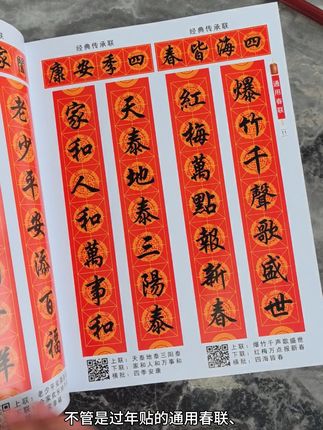 经典传承联
四海皆春
爆竹千聲歌盛世
紅梅萬點報新春
上联：爆竹千声歌盛世
下联：红梅万点报新春
横批：四海皆春
经典传承联
四季安康
天泰地泰三陽泰
家和人和萬事和
上联：天泰地泰三阳泰
下联：家和人和万事和
横批：四季安康
通用春联
家
老少平安添百福
祥
上联：
下联：
横批：
不管是过年贴的通用春联、